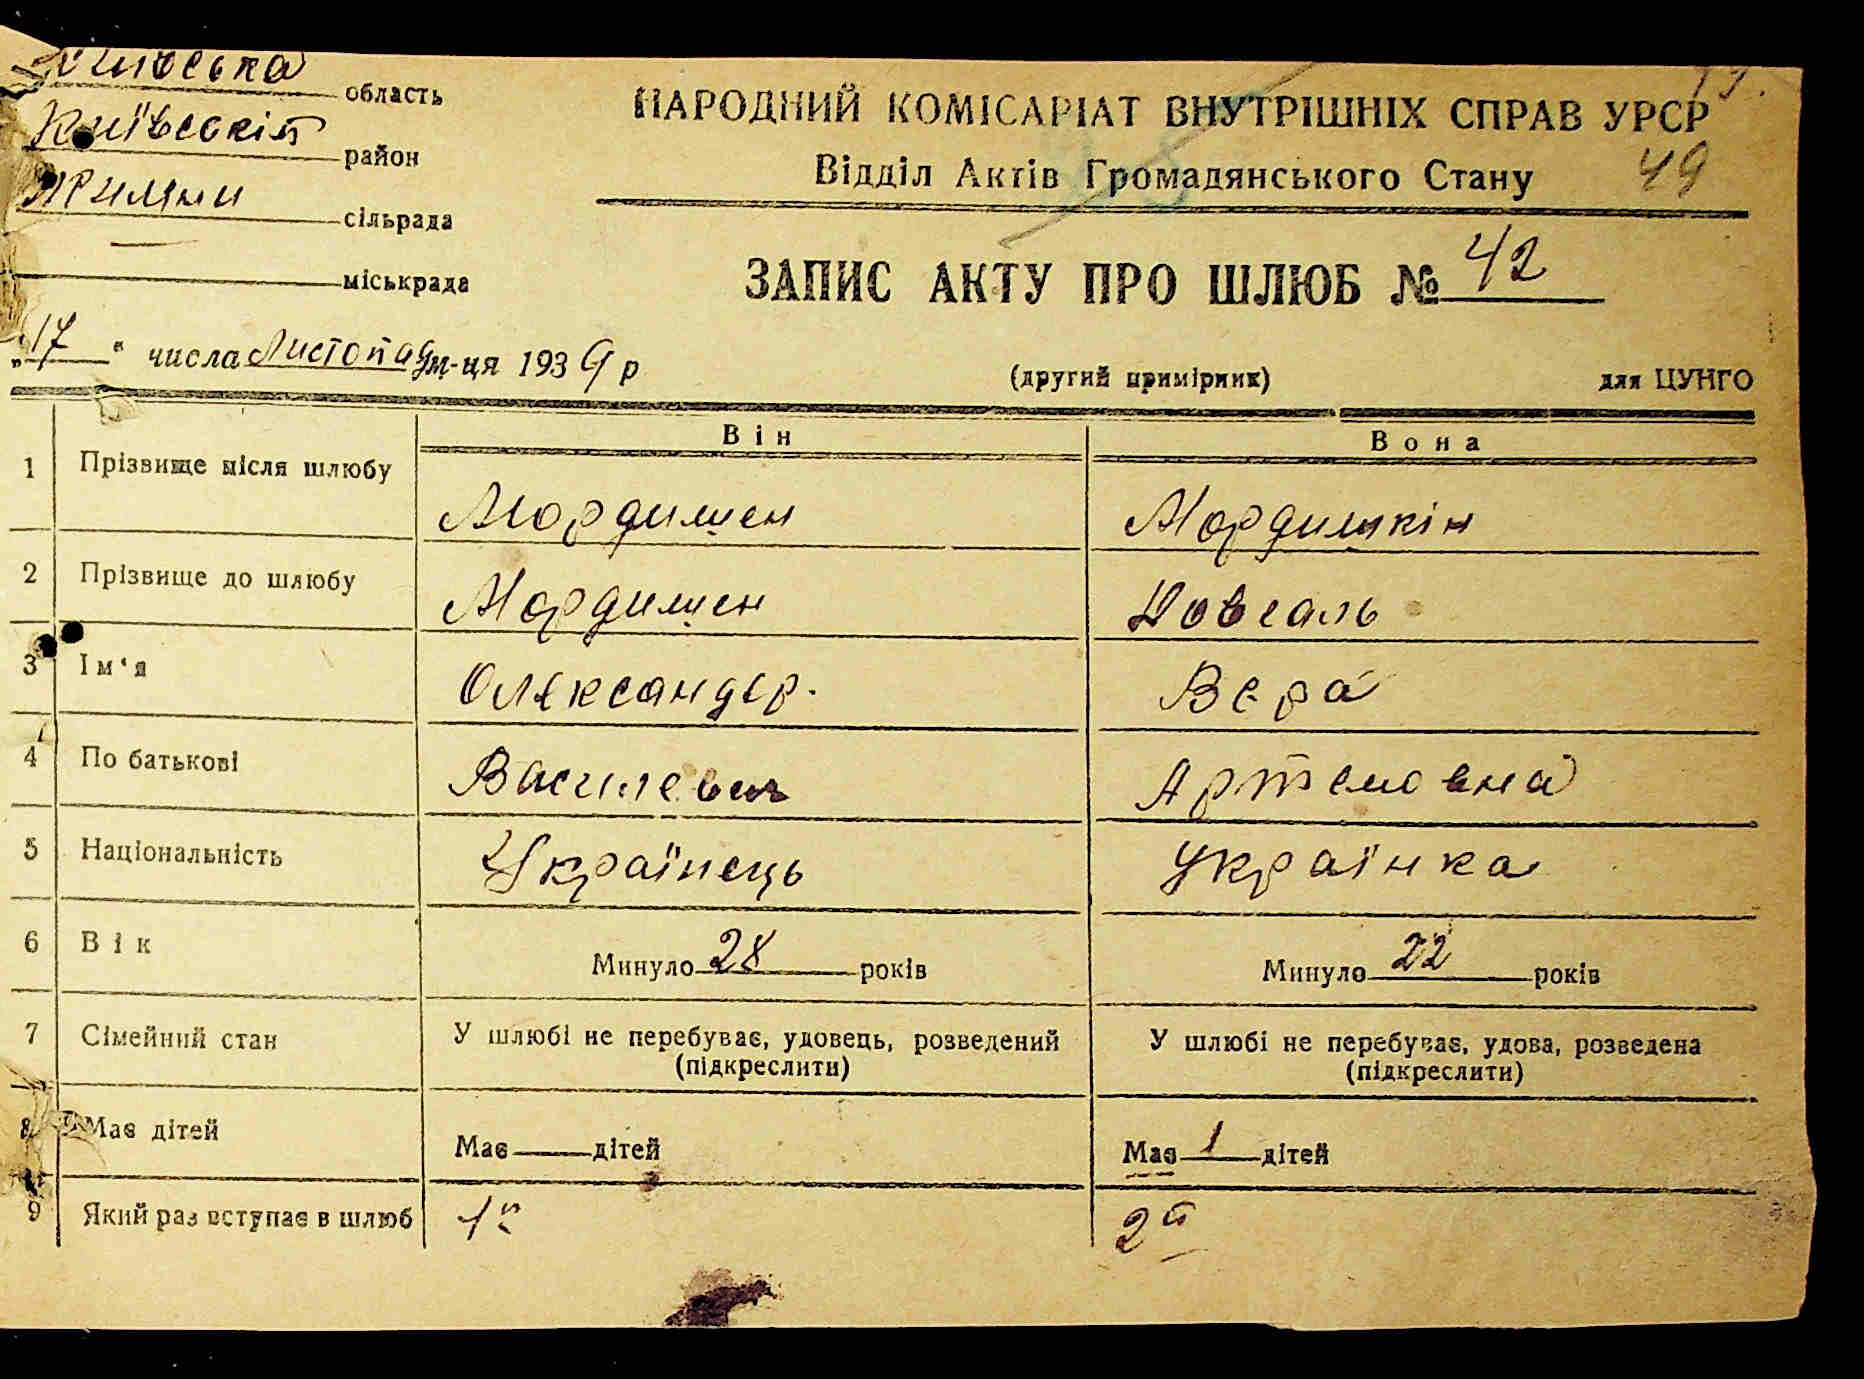 Київська область
Київський район
сільрада
— міськрада
НАРОДНИЙ КОМІСАРІАТ ВНУТРІШНІХ СПРАВ УРСР
Відділ Актів Громадянського Стану
49
ЗАПИС АКТУ ПРО ШЛЮБ № 42
„17“ числа Листопад м-ця 1939 р
(другий примірник) для ЦУНГО
Він Вона
1 Прізвище після шлюбу Мордишен Мордишкін
2 Прізвище до шлюбу Мордишен Довгаль
3 Ім'я Олександер. Вера
4 По батькові Василевич Артемовна
5 Національність Українець Українка
6 Вік Минуло 28 років Минуло 22 років
7 Сімейний стан У шлюбі не перебуває, удовець, розведений У шлюбі не перебуває, удова, розведена
(підкреслити) (підкреслити)
8 Має дітей Має — дітей Має 1 дітей
9 Який раз вступає в шлюб 1й 2й